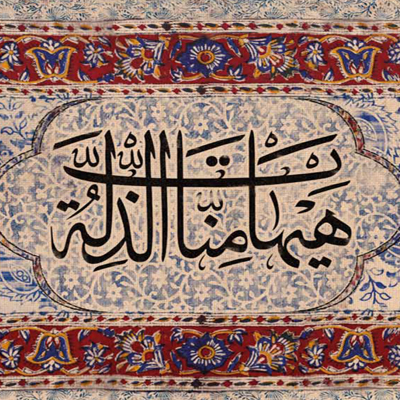 هيهات منا الذلة